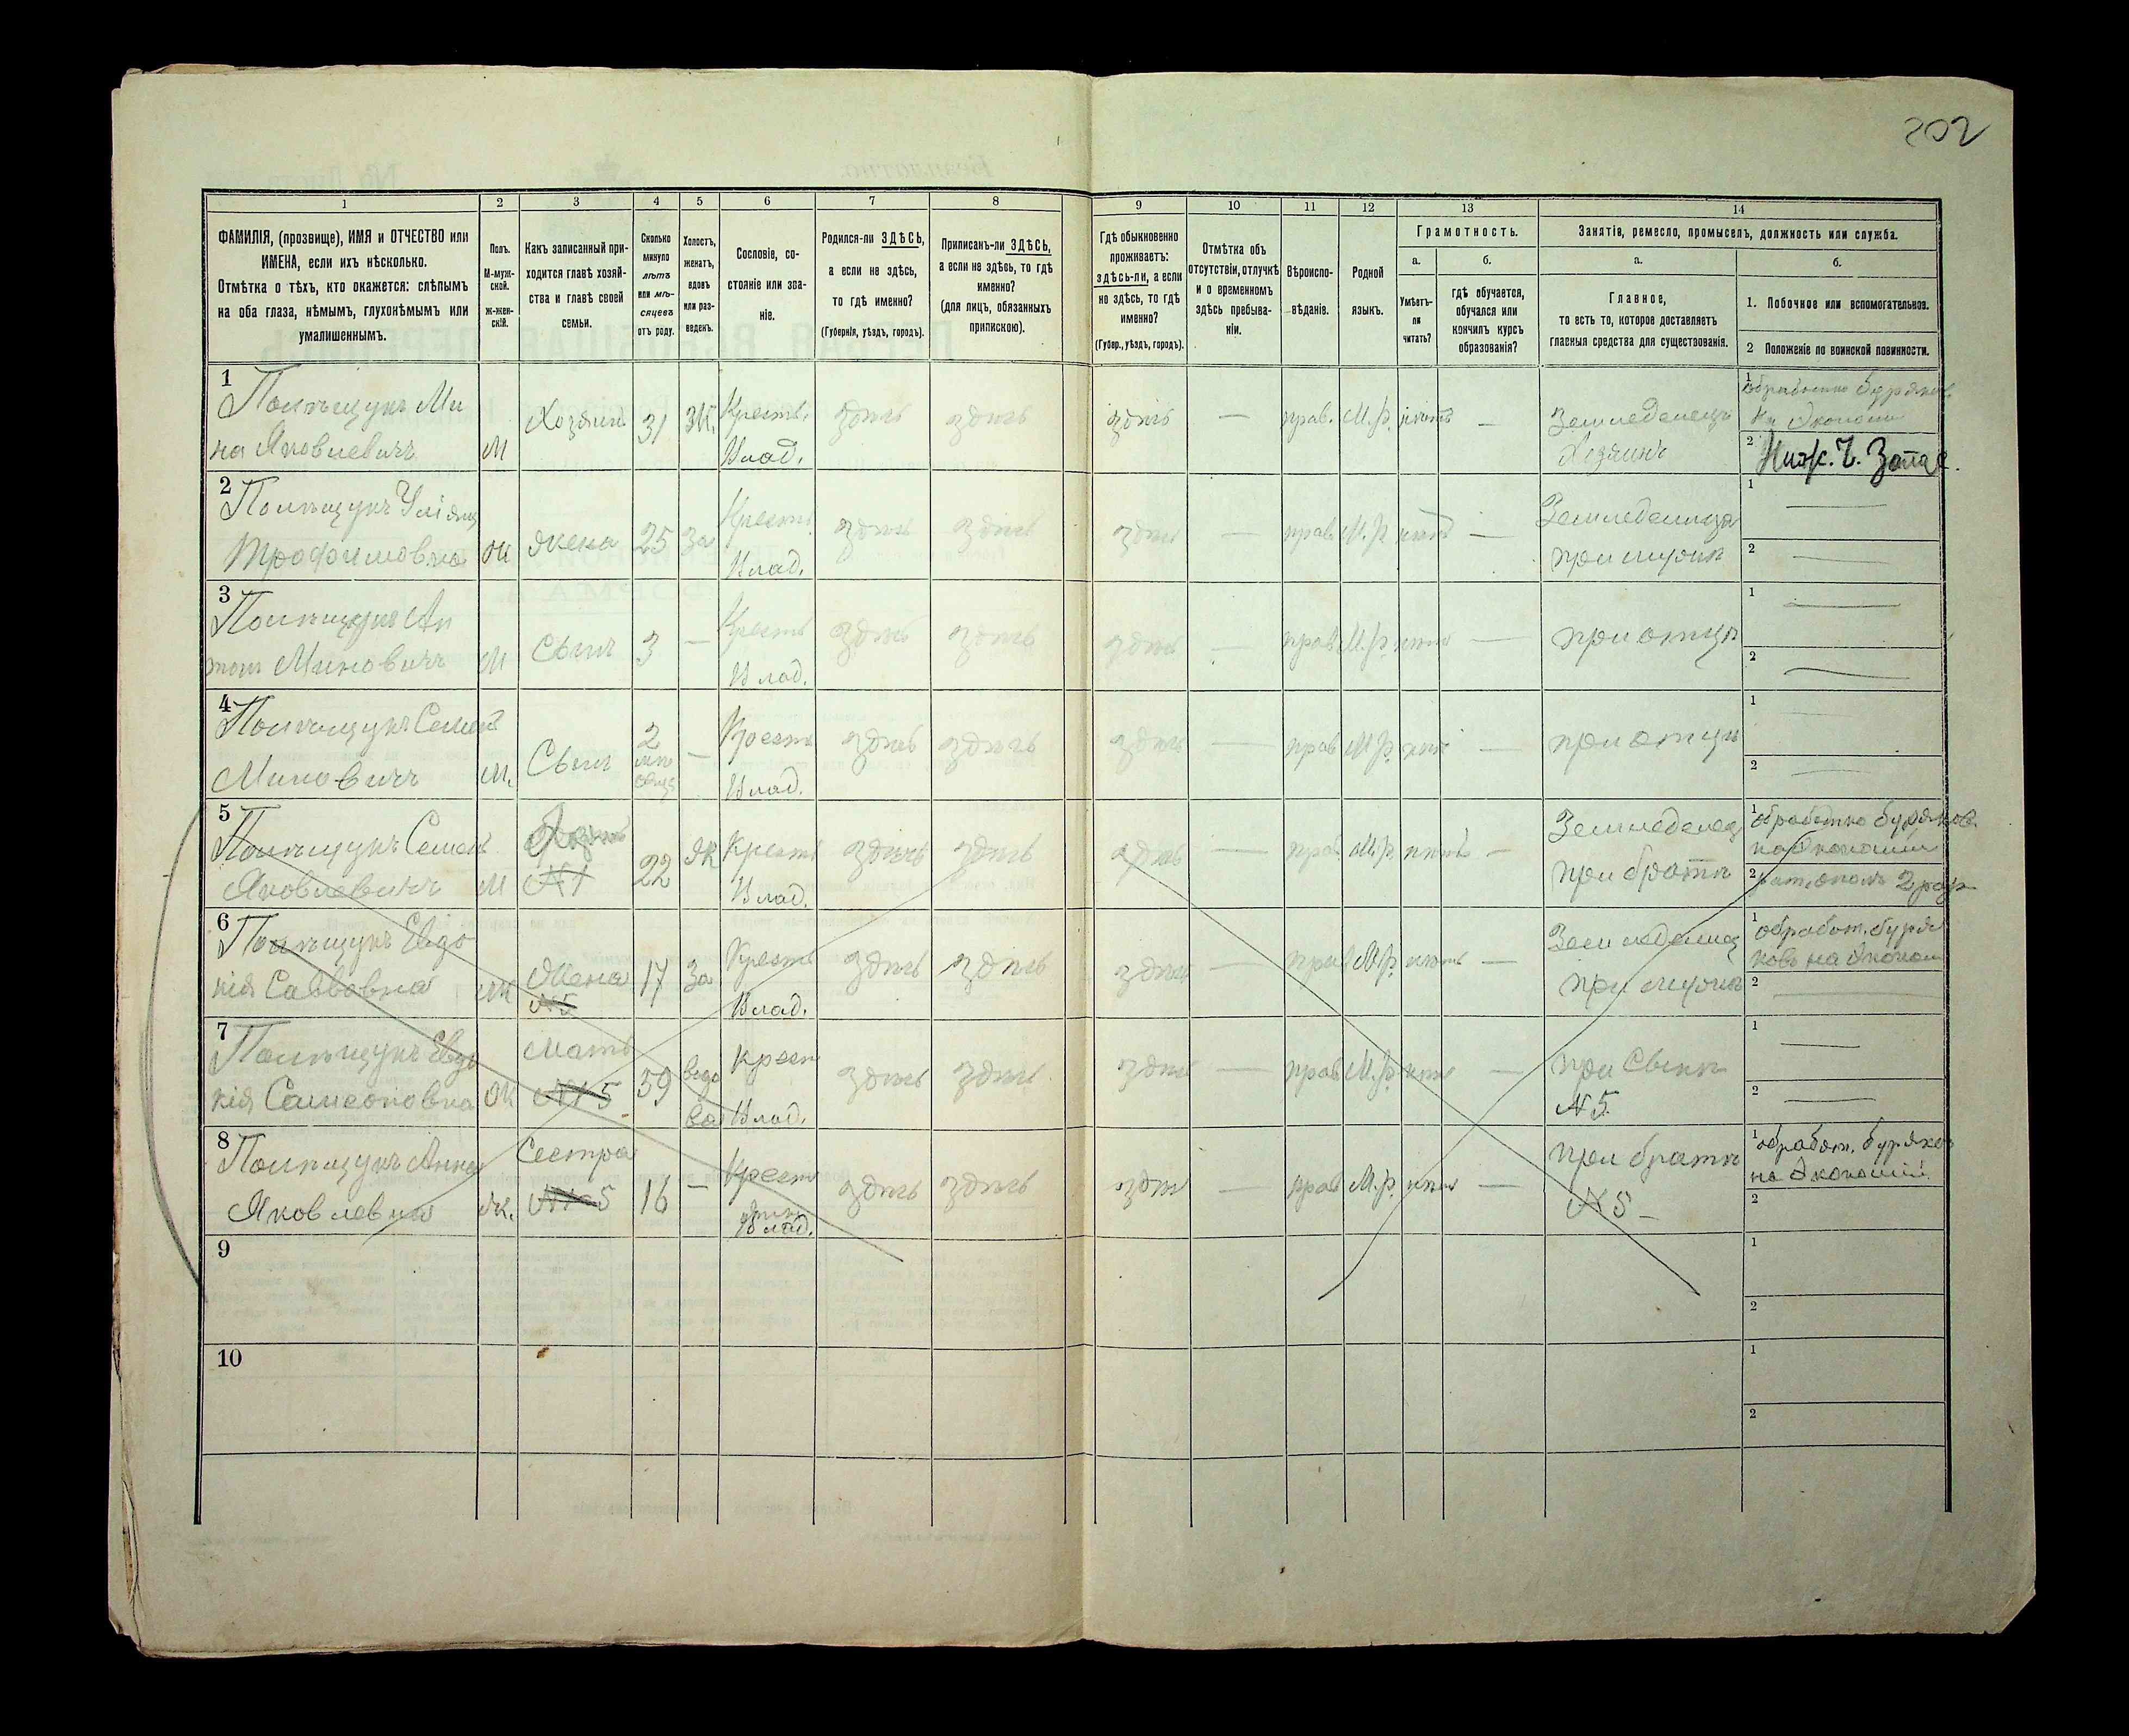 202
1
2
3
4
5
6
7
8
9
10
11
12
13
14
ФАМИЛІЯ, (прозвище), ИМЯ и ОТЧЕСТВО или
ИМЕНА, если ихъ нѣсколько.
Отмѣтка о тѣхъ, кто окажется: слѣпымъ
на оба глаза, нѣмымъ, глухонѣмымъ или
умалишеннымъ.
Полъ.
М-муж-
ской.
Ж-жен-
скій.
Какъ записанный при-
ходится главѣ хозяй-
ства и главѣ своей
семьи.
Сколько
минуло
лѣтъ
или мѣ-
сяцевъ
отъ роду.
Холостъ,
женатъ,
вдовъ
или раз-
веденъ.
Сословіе, со-
стояніе или зва-
ніе.
Родился-ли ЗДѢСЬ,
а если не здѣсь,
то гдѣ именно?
(Губернія, уѣздъ, городъ).
Приписанъ-ли ЗДѢСЬ,
а если не здѣсь, то гдѣ
именно?
(для лицъ, обязанныхъ
припискою).
Гдѣ обыкновенно
проживаетъ:
здѣсь-ли, а если
не здѣсь, то гдѣ
именно?
(Губер., уѣздъ, городъ).
Отмѣтка объ
отсутствіи, отлучкѣ
и о временномъ
здѣсь пребыва-
ніи.
Вѣроиспо-
вѣданіе.
Родной
языкъ.
Грамотность.
а.
Умѣетъ-
ли
читать?
б.
гдѣ обучается,
обучался или
кончилъ курсъ
образованія?
Занятія, ремесло, промыселъ, должность или служба.
а.
Главное,
то есть то, которое доставляетъ
главныя средства для существованія.
б.
1. Побочное или вспомогательное.
2 Положеніе по воинской повинности.
1
Полѣщукъ Ми
на Яковлевичъ
М
Хозяинъ
31
Ж.
Кресть.
Влад.
здѣсь
здѣсь
здѣсь
—
прав.
М.р.
нѣтъ
—
Земледелецъ
Хозяинъ
1
обработка буряков
на Экономи
2
Ниж. Ч. Запас.
2
Полѣщукъ Уліяна
Трофимовна
Ж
жена
25
За
Кресть
Влад.
здѣсь
здѣсь
здѣсь
—
прав
М.р
нѣтъ
—
Земледелица
при мужѣ
1
—
2
—
3
Полѣщукъ Ан
тон Миновичъ
М
Сынъ
3
—
Кресть
Влад.
здѣсь
здѣсь
здѣсь
—
прав
М.р.
нѣтъ
—
при отцѣ
1
—
2
—
4
Полѣщукъ Семенъ
Миновичъ
М.
Сынъ
2
мѣ
сяца
—
Кресть
Влад.
здѣсь
здѣсь
здѣсь
—
прав
М.р.
нѣт
—
при отцѣ
1
—
2
—
5
Полѣщукъ Семенъ
Яковлевичъ
М
№1
22
Ж
Кресть
Влад.
здѣсь
здѣсь
здѣсь
—
прав
М.р.
нѣтъ
—
Земледелец
при братѣ
1
обработка буряков.
на Экономіи
2
рат. ополч 2 раз
6
Полѣщукъ Евдо
кія Саввовна
Ж
Жена
№5
17
За
Кресть
Влад.
здѣсь
здѣсь
здѣсь
—
прав
М.р.
нѣтъ
—
Земледелица
при мужѣ
1
обработ. буря
ковъ на Эконом
2
—
7
Полѣщукъ Евдо
кія Самсоновна
Ж
Мать
№1 5
59
вдо
ва
Крест
Влад.
здѣсь
здѣсь
здѣсь
—
прав
М.р.
нѣтъ
—
при Сынѣ
№5.
1
—
2
—
8
Полѣщукъ Анна
Яковлевна
Ж.
Сестра
№1 5
16
—
Крест
Влад.
здѣсь
здѣсь
здѣсь
—
прав
М.р.
нѣтъ
—
при братѣ
№5 —
1
обработ. буряков
на Экономіи
2
9
1
2
10
1
2